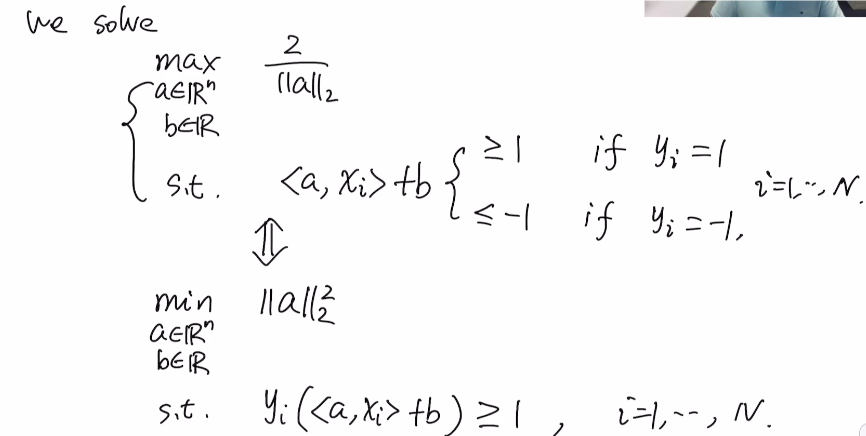 we solve
max 2/||a||₂
a∈ℝⁿ
b∈ℝ
s.t. <a, xᵢ> +b { ≥ 1 if yᵢ = 1
≤ -1 if yᵢ = -1, i=1,..., N.
⇕
min ||a||₂²
a∈ℝⁿ
b∈ℝ
s.t. yᵢ(<a, xᵢ> +b) ≥ 1 , i=1,---, N.